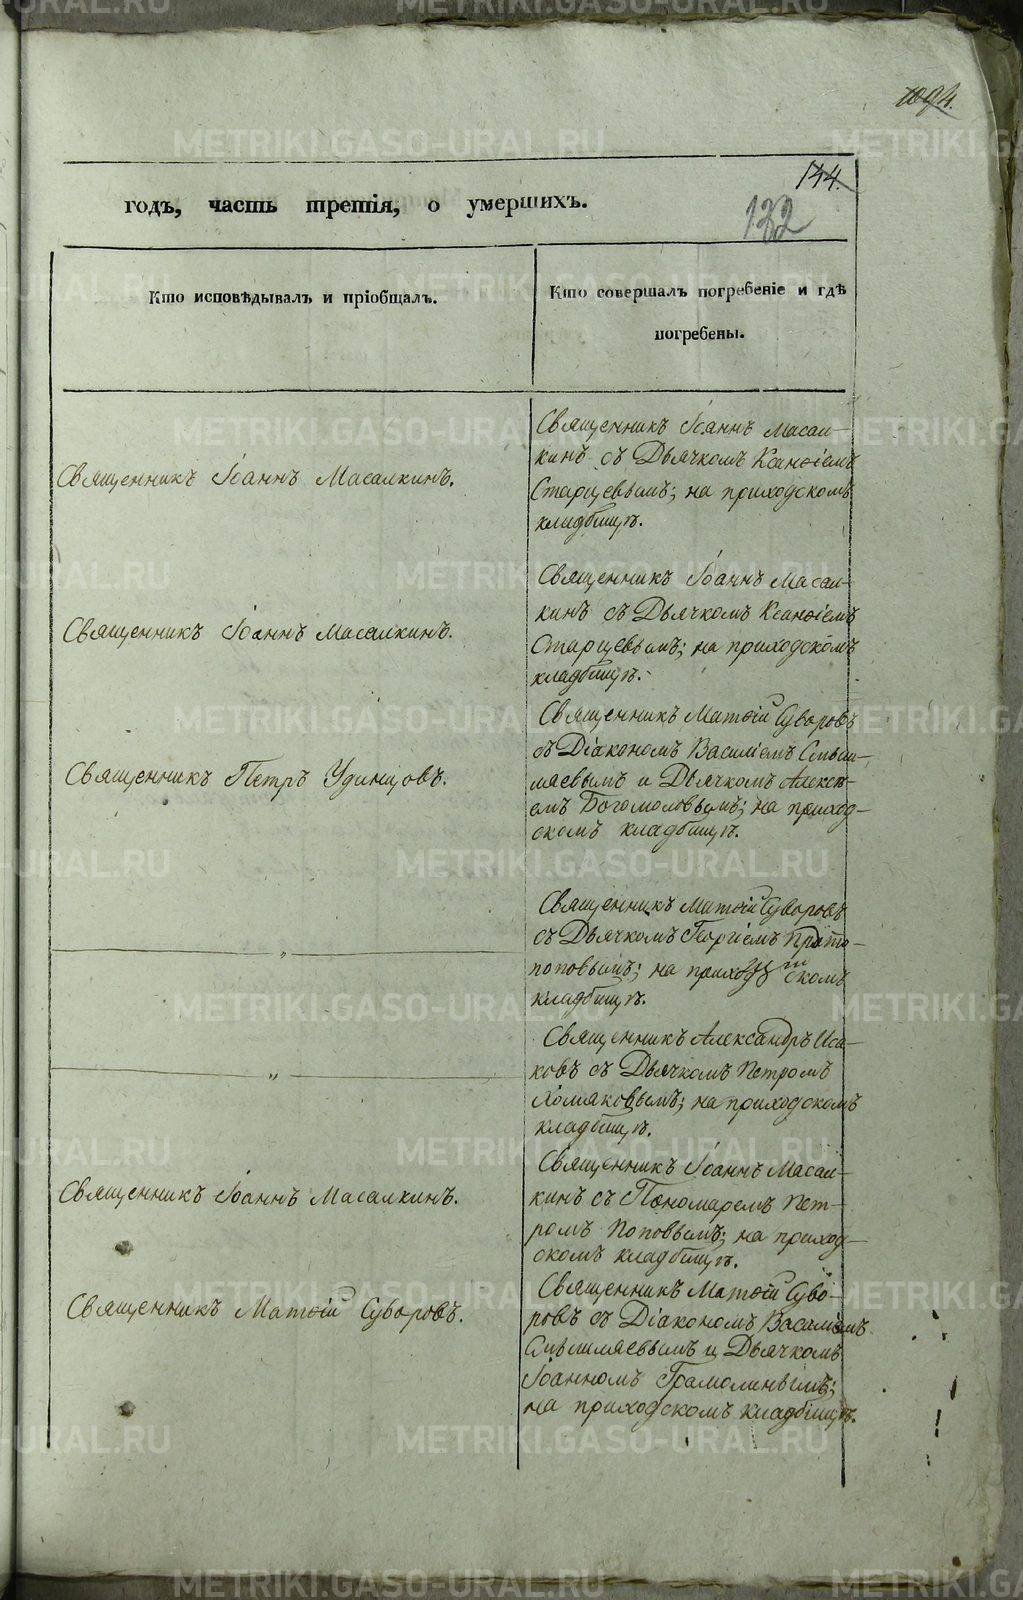 1094.
144.
132
годъ, часть третія, о умершихъ.
Кто исповѣдывалъ и пріобщалъ.
Кто совершалъ погребеніе и гдѣ
погребены.
Священникъ Іоаннъ Масалкинъ.
Священникъ Іоаннъ Масал-
кинъ съ Дьячкомъ Ксанѳіемъ
Старцевымъ; на приходскомъ
кладбищѣ.
Священникъ Іоаннъ Масалкинъ.
Священникъ Іоаннъ Масал-
кинъ съ Дьячкомъ Ксанѳіемъ
Старцевымъ; на приходскомъ
кладбищѣ.
Священникъ Петръ Удинцовъ.
Священникъ Матѳій Суворовъ
съ Діакономъ Василіемъ
и Дьячкомъ Алексѣ-
емъ Богомоловымъ; на приход-
скомъ кладбищѣ.
„
Священникъ Матѳій Суворовъ
съ Дьячкомъ Георгіемъ Прото-
поповымъ; на приходскомъ
кладбищѣ.
„
Священникъ Александръ Иса-
ковъ съ Дьячкомъ Петромъ
Хомяковымъ; на приходскомъ
кладбищѣ.
Священникъ Іоаннъ Масалкинъ.
Священникъ Іоаннъ Масал-
кинъ съ Пономаремъ Пет-
ромъ Поповымъ; на приход-
скомъ кладбищѣ.
Священникъ Матѳій Суворовъ.
Священникъ Матѳій Суво-
ровъ съ Діакономъ Василіемъ
и Дьячкомъ
Іоанномъ Грамолинымъ;
на приходскомъ кладбищѣ.
METRIKI.GASO-URAL.RU